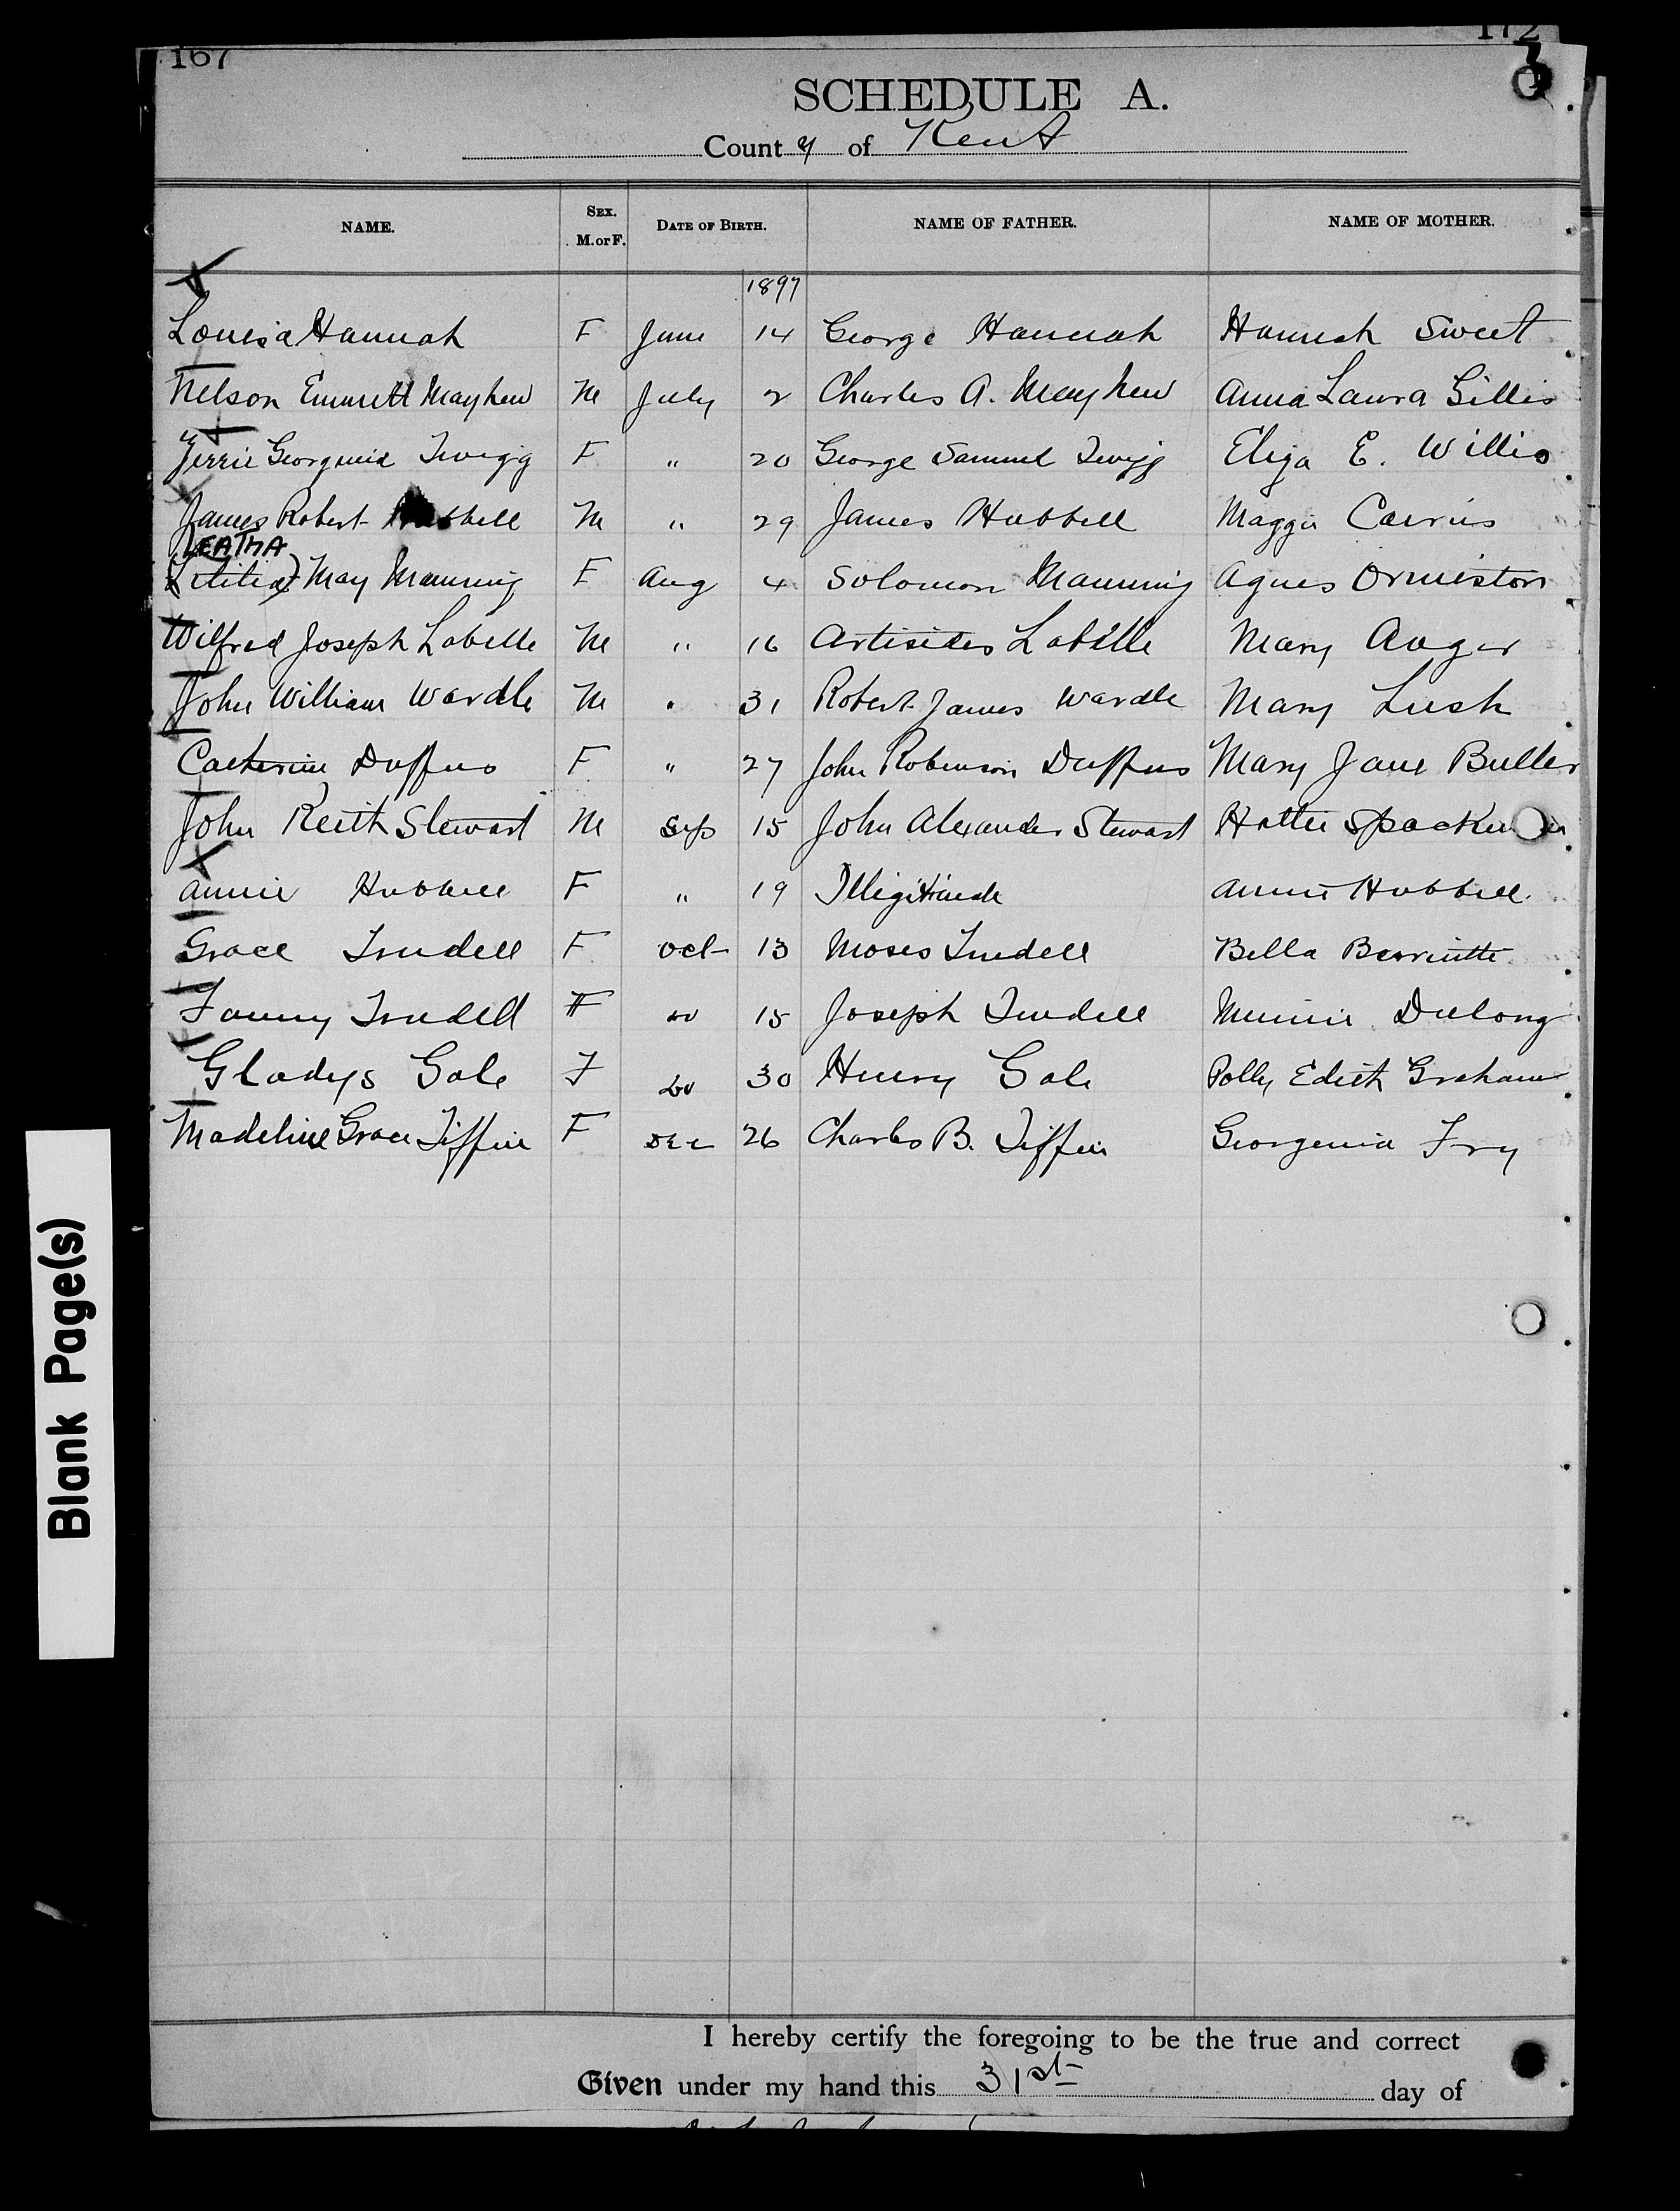 167
172
3
SCHEDULE A.
County of Kent
NAME. SEX. M. or F. DATE OF BIRTH. NAME OF FATHER. NAME OF MOTHER.
1897
Louisa Hannah F June 14 George Hannah Hannah Sweet
Nelson Emmett Mayhew M July 2 Charles A. Mayhew Anna Laura Gillis
Georginia Twigg F " 20 George Samuel Twigg Eliza E. Willis
James Robert M " 29 James Hubbell Maggie Cairns
LEATHA
(Letitia) May Manning F Aug 4 Solomon Manning Agnes Ormiston
Wilfred Joseph Labelle M " 16 Labelle Mary Auger
John William Wardle M " 31 Robert James Wardle Mary Lush
Catherine Duffus F " 27 John Robinson Duffus Mary Jane Butler
John Keith Stewart M Sep 15 John Alexander Stewart Hattie
Annie Hubbell F " 19 Illigitimate Annie Hubbell.
Grace Trudell F Oct 13 Moses Trudell Bella
Fanny Trudell F do 15 Joseph Trudell Minnie Dulong
Gladys Gale F do 30 Henry Gale Polly Edith Graham
Madeline Grace Tiffin F Dec 26 Charles B. Tiffin Georgenia Fry
Blank Page(s)
I hereby certify the foregoing to be the true and correct
Given under my hand this 31st day of